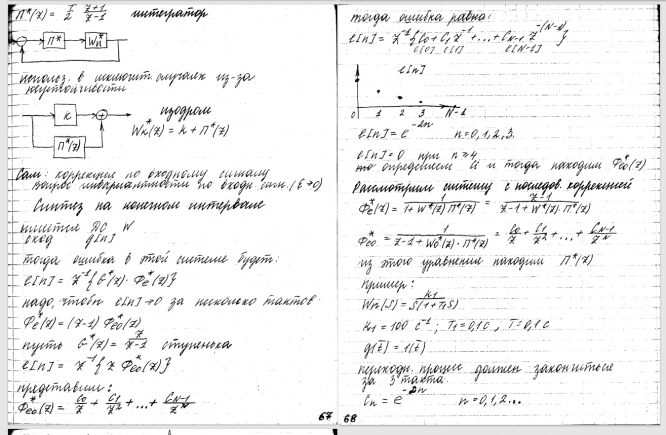 П*(z) = T/2 · (z+1)/(z-1) интегратор
П* Wп*
использ. в исключит. случаях из-за
неустойчивости
k изодром
П*(z) Wк*(z) = k + П*(z)
Сам: коррекция по входному сигналу
инвариантности по входн. сигн. (ε→0)
Синтез на конечном интервале
имеется ДС W
вход g[n]
тогда ошибка в этой системе будет:
e[n] = z⁻¹{G*(z)·Фe*(z)}
надо, чтобы e[n]→0 за несколько тактов
Фe*(z) = (z-1) Фeo*(z)
пусть G*(z) = z/(z-1) ступенька
e[n] = z⁻¹{z Фeo*(z)}
представим:
Фeo*(z) = C0/z + C1/z² + ... + CN-1/z^N
67
тогда ошибка равна:
e[n] = z⁻¹{C0 + C1z⁻¹ + ... + CN-1 z^-(N-1)}
e[0] e[1] e[N-1]
e[n]
0 1 2 3 N-1
e[n] = e^-2n n=0,1,2,3.
e[n]=0 при n≥4
то определяем Ci и тогда находим Фeo*(z)
Рассмотрим систему с последов. коррекцией
Фe*(z) = 1/(1+W*(z)П*(z)) = (z-1)/(z-1+W*(z)П*(z))
Фeo* = 1/(z-1+Wo*(z)·П*(z)) = C0/z + C1/z² + ... + CN-1/z^N
из этого уравнения находим П*(z)
пример:
Wн(S) = k1/S(1+T1S)
k1 = 100 c⁻¹; T1 = 0,1c, T = 0,1c
g(t) = 1(t)
переходн. процесс должен закончиться
за 3 такта.
Cn = e^-2n n=0,1,2...
68